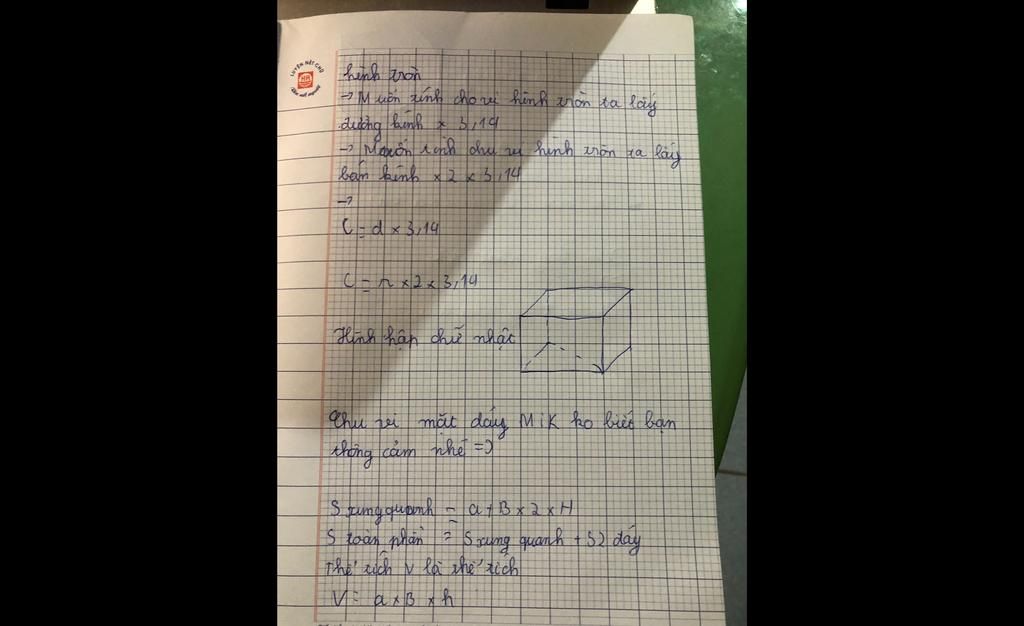 LUYỆN NÉT CHỮ
hình tròn
→ Muốn tính cho vi hình tròn ta lấy
đường kính × 3,14
→ Muốn tính chu vi hình tròn ta lấy
bán kính × 2 × 3,14
→
C = d × 3,14
C = r × 2 × 3,14
Hình hập chữ nhật
Chu vi mặt dáy Mik ko biết bạn
thông cảm nhé =)
S xung quanh = a + B × 2 × H
S toàn phần = S xung quanh + S2 đáy
Thể tích V là thể tích
V = a × B × h